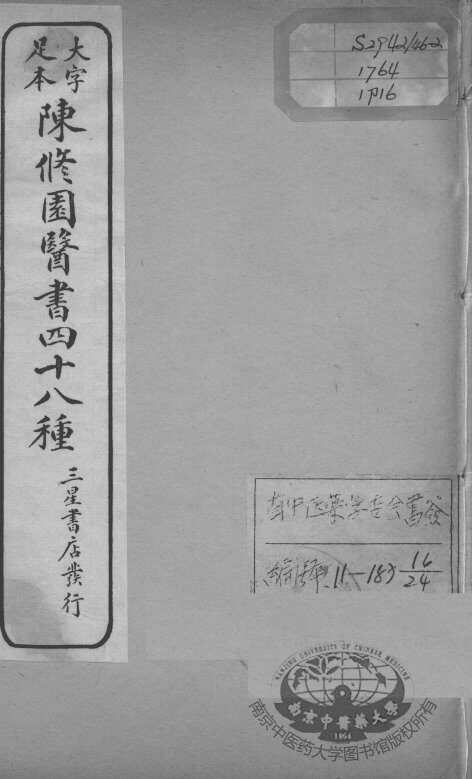 大字
足本
陳修園醫書四十八種
三星書店發行
S2942/46-2
1764
1716
編號 11-185 16/24
NANJING UNIVERSITY OF CHINESE MEDICINE
南京中醫藥大學
1954
南京中医药大学图书馆版权所有